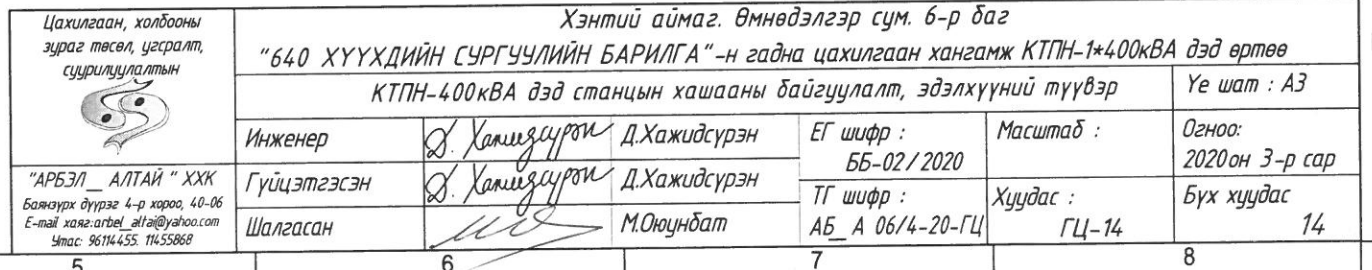 Цахилгаан, холбооны
зураг төсөл, угсралт,
суурилуулалтын
"АРБЭЛ__ АЛТАЙ " ХХК
Баянзүрх дүүрэг 4-р хороо, 40-06
E-mail хаяг:arbel_altai@yahoo.com
Утас: 96114455. 11455868
Хэнтий аймаг. Өмнөдэлгэр сум. 6-р баг
"640 ХҮҮХДИЙН СУРГУУЛИЙН БАРИЛГА"-н гадна цахилгаан хангамж КТПН-1*400кВА дэд өртөө
КТПН-400кВА дэд станцын хашааны байгуулалт, эдэлхүүний түүвэр
Үе шат : А3
Инженер Д. Хажидсүрэн Д.Хажидсүрэн
Гүйцэтгэсэн Д. Хажидсүрэн Д.Хажидсүрэн
Шалгасан М.Оюунбат
ЕГ шифр :
ББ-02/2020
ТГ шифр :
АБ_ А 06/4-20-ГЦ
Масштаб :
Хуудас :
ГЦ-14
Огноо:
2020он 3-р сар
Бүх хуудас
14
5 6 7 8